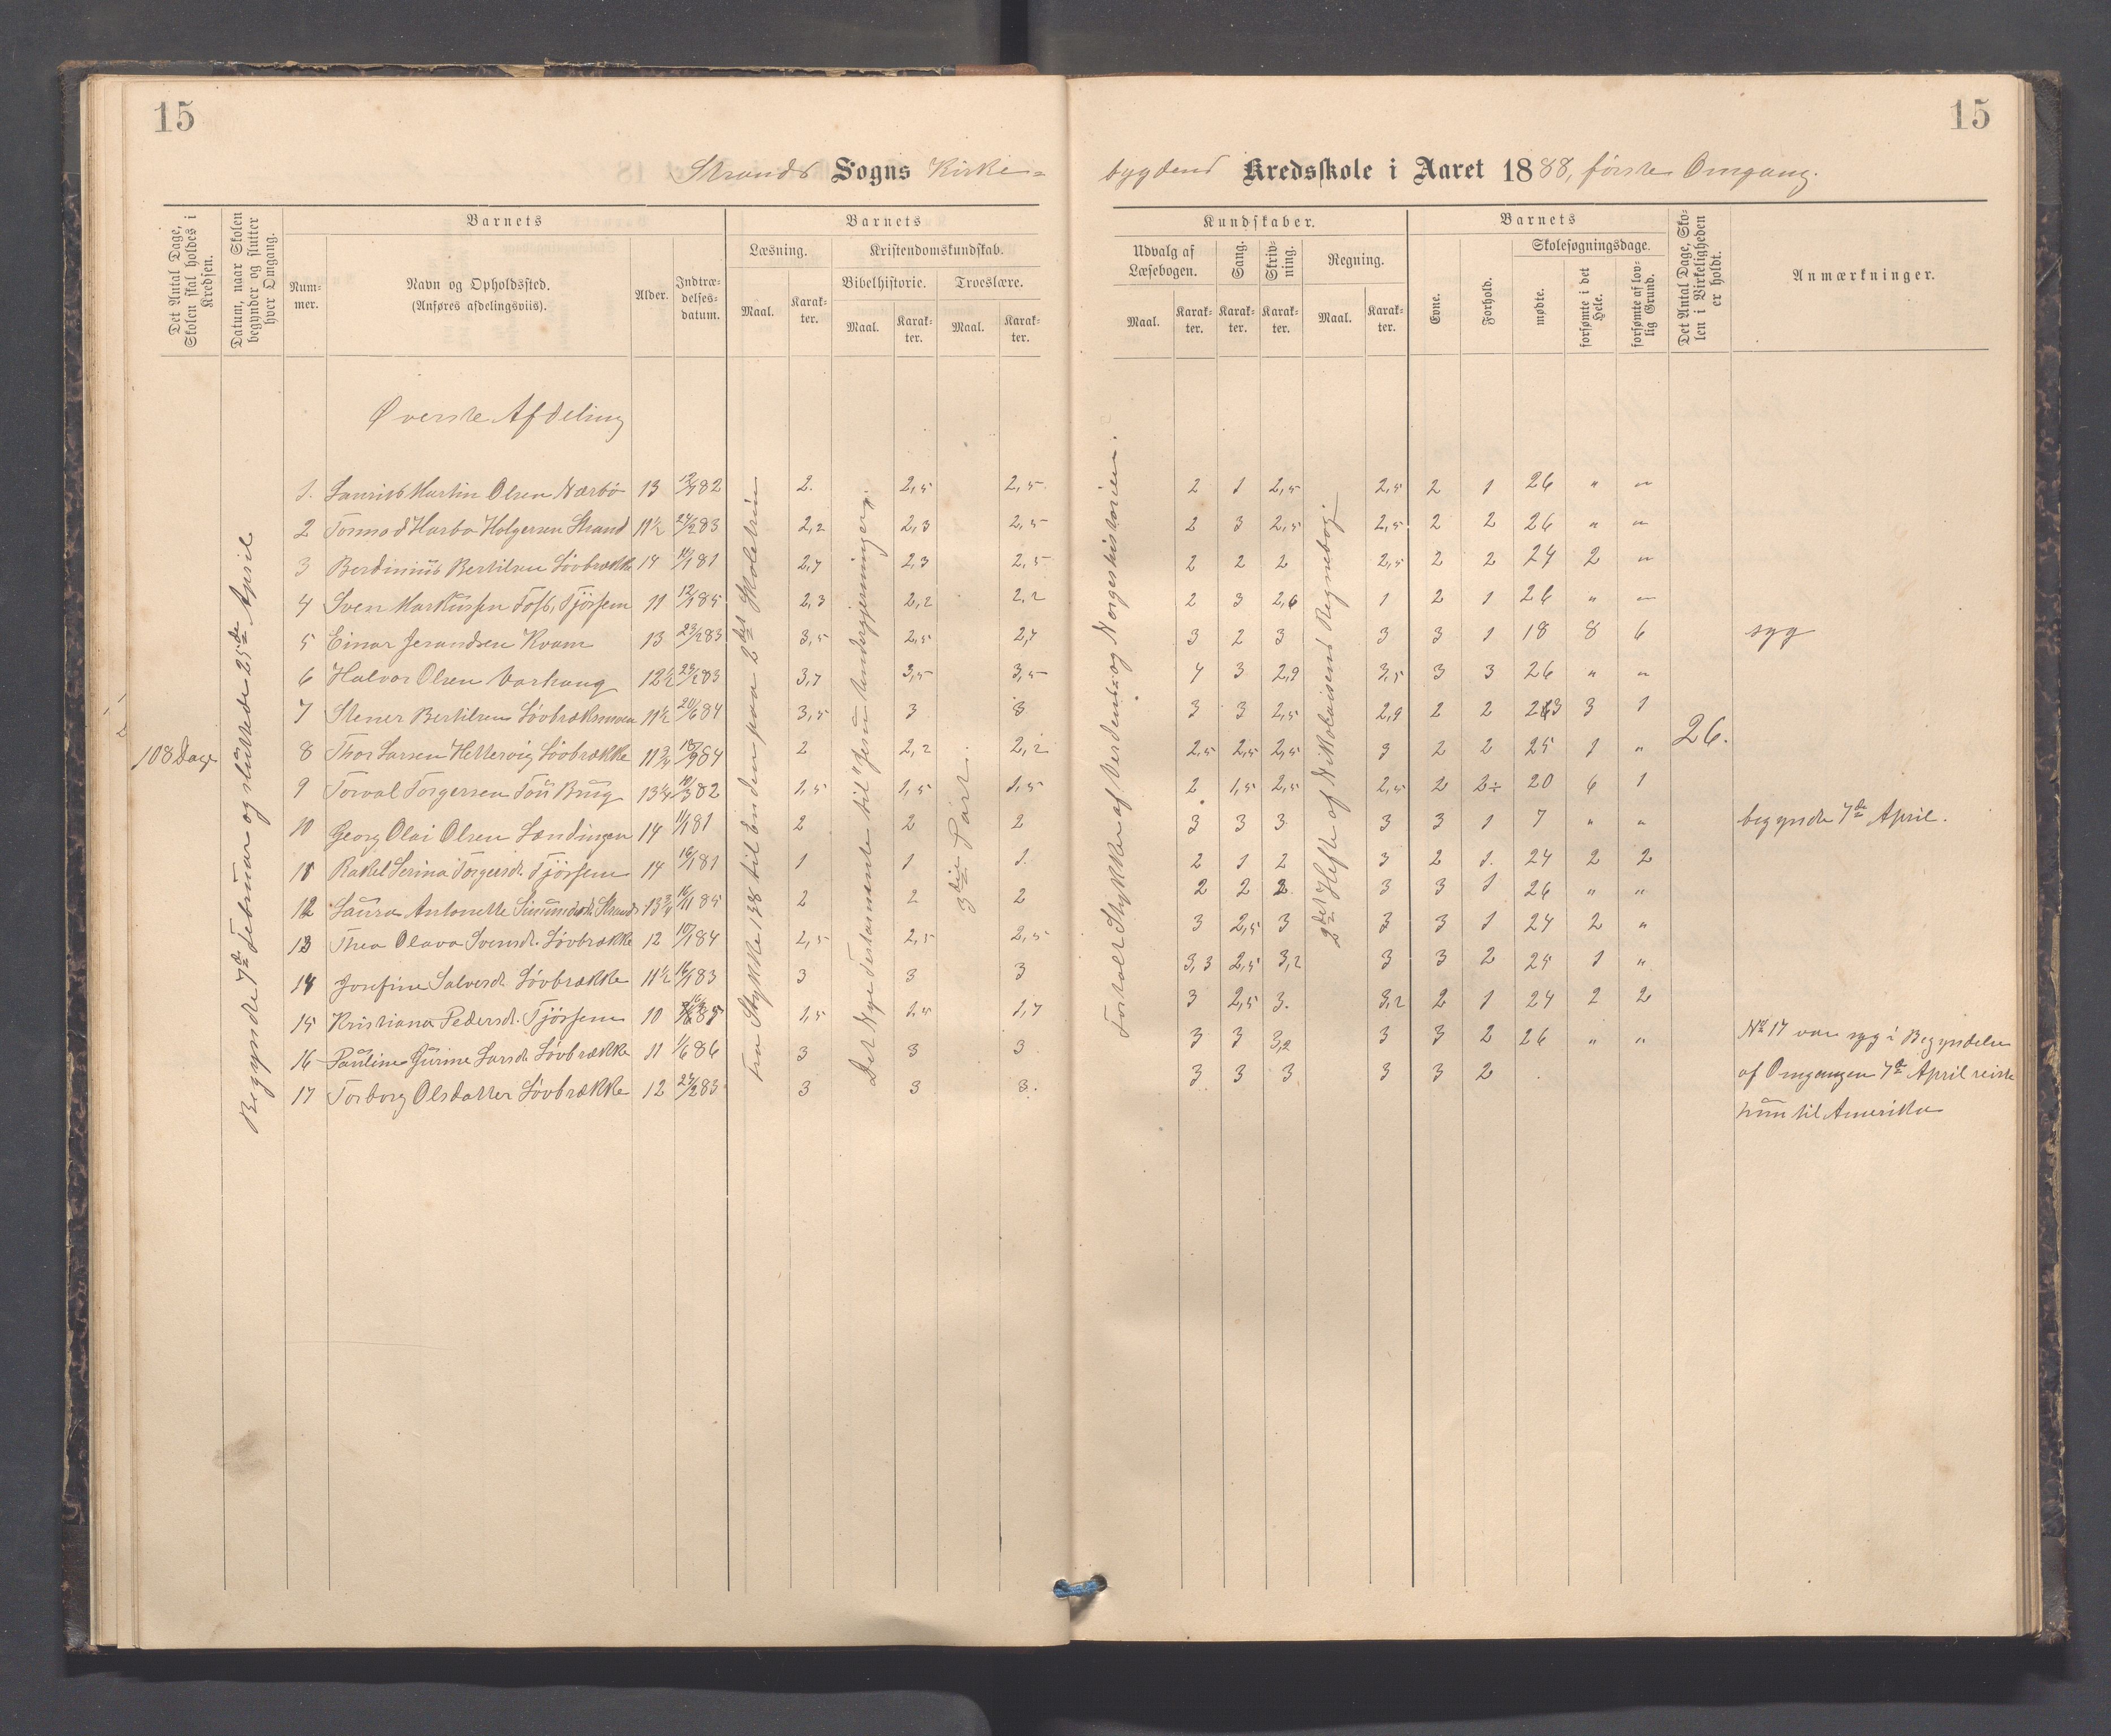 15
15
Strands Sogns Kirke=
bygdens Kredsskole i Aaret 1888, første Omgang.
Det Antal Dage, Skolen skal holdes i Kredsen.
Datum, naar Skolen begynder og slutter hver Omgang.
Barnets
Num-mer.
Navn og Opholdssted.
(Anføres afdelingsviis).
Alder.
Indtræ-delses-datum.
Barnets
Læsning.
Kristendomskundskab.
Bibelhistorie.
Troeslære.
Maal.
Karak-ter.
Maal.
Karak-ter.
Maal.
Karak-ter.
Kundskaber.
Udvalg af Læsebogen.
Sang.
Skriv-ning.
Regning.
Maal.
Karak-ter.
Karak-ter.
Karak-ter.
Maal.
Karak-ter.
Barnets
Evne.
Forhold.
Skolesøgningsdage.
mødte.
forsømte i det Hele.
forsømte af lov-lig Grund.
Det Antal Dage, Sko-len i Virkeligheden er holdt.
Anmærkninger.
Øverste Afdeling
108 Dage
Begyndte 7de Februar og sluttede 25de April
fra Stykke 138 til Enden paa 2det Skoletrin
Det Nye Testamente til "Jesu Undergjerninger".
3die Part.
Fortalt Stykker af Verdens- og Norgeshistorien.
2det Hefte af Nikolaisens Regnebog.
26.
1. Laurits Martin Olsen Nærbø 13 12/9 82 2. 2,5 2,5 2 1 2,5 2,5 2 1 26 " "
2 Tormod Harbo Holgersen Strand 11½ 24/2 83 2,2 2,3 2,5 2 3 2,5 2,5 2 2 26 " "
3 Berdinius Bertilsen Løvbrække 14 11/1 81 2,7 2,3 2,5 2 2 2 2,5 2 2 24 2 "
4 Sven Markussen Tøfs, Tjøssem 11 12/1 85 2,3 2,2 2,2 2 3 2,6 1 2 1 26 " "
5 Einar Jerandsen Kvam 13 23/2 83 3,5 2,5 2,7 3 2 3 3 3 1 18 8 6 syg
6 Halvor Olsen Varhaug 12½ 23/2 83 3,7 3,5 3,5 4 3 2,9 3,5 3 3 26 " "
7 Stener Bertilsen Løvbræksmoen 11½ 20/6 84 3,5 3 3 3 3 2,5 2,9 2 2 23 3 1
8 Thor Larsen Hettervig Løvbrække 11¾ 18/9 84 2 2,2 2,2 2,5 2,5 2,5 3 2 2 25 1 "
9 Torval Torgersen Tou Brug 13¼ 10/3 82 1,5 1,5 1,5 2 1,5 2,5 2,5 2 2÷ 20 6 1
10 Georg Olai Olsen Lændingen 14 11/1 81 2 2 2 3 3 3 3 3 1 7 " " begyndte 7de April.
11 Rakel Serina Torgersd. Tjøssem 14 16/1 81 1 1 1. 2 1 2 3 2 1. 24 2 2
12 Laura Antonette Simundsd. Strand 13¾ 16/11 85 2 2 2 2 2 2 3 3 1 26 " "
13 Thea Olava Svensd. Løvbrække 12 10/1 84 2,5 2,5 2,5 3 2,5 3 3 3 1 24 2 "
14 Josefine Salvesd. Løvbrække 11½ 16/1 83 3 3 3 3,3 2,5 3,2 3 3 2 25 1 "
15 Kristiana Pedersd. Tjøssem 10 1,5 1,5 1,7 3 2,5 3. 3,2 2 1 24 2 2
16 Pauline Gurine Larsd. Løvbrække 11 1/6 86 3 3 3 3 3 3,2 3 3 2 26 " "
17 Torborg Olsdatter Løvbrække 12 23/2 83 3 3 3. 3 3 3 3 3 2
No 17 var syg i Begyndelsen
af Omgangen 7de April reiste
hun til Amerika